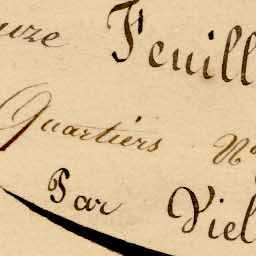 uze Feuill
Quartiers No
Par Viel